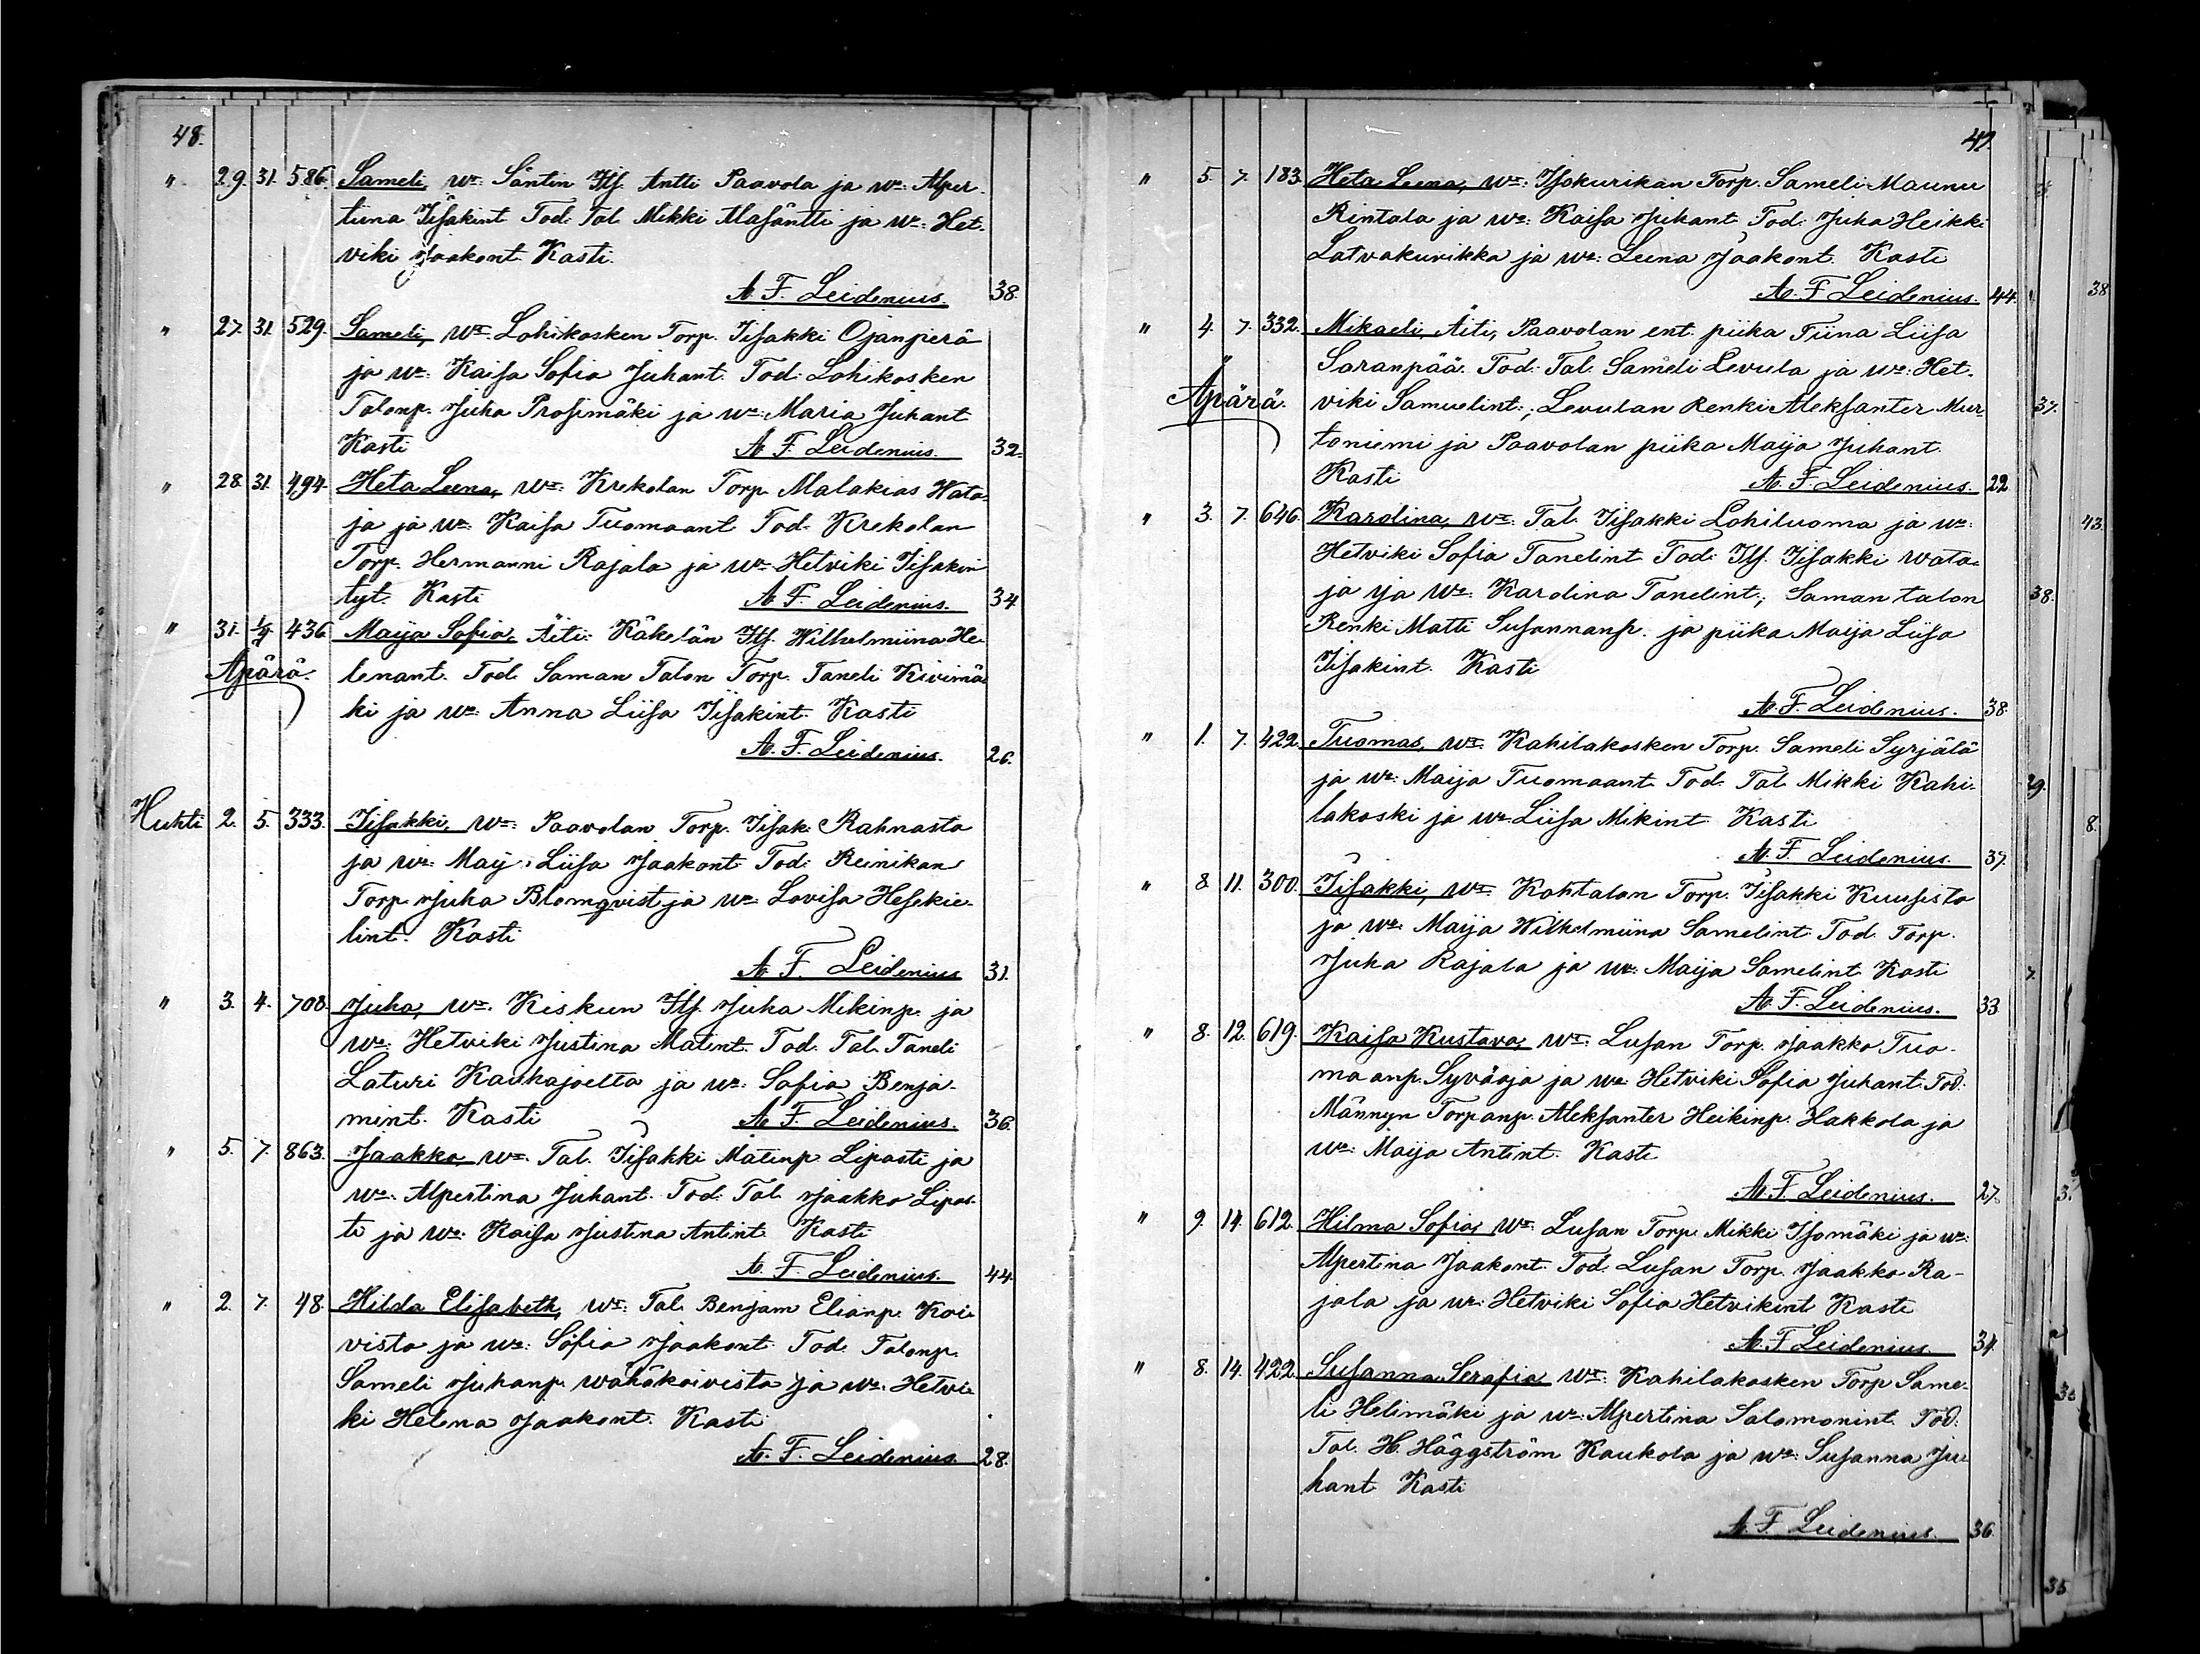 48.
" 29. 31. 586. Sameli, wt: Säntin Itf. Antti Paavola ja wo: Alper-
tiina Iisakint. Tod: Tal. Mikki Alasäntti ja wo: Het-
viki Jaakont. Kasti.
A. F. Leidenius. 38.
" 27. 31. 529. Sameli, wt: Lohikosken Torp. Iisakki Ojanperä
ja wo: Kaisa Sofia Juhant. Tod: Lohikosken
Talonp. Juha Prosimäki ja wo: Maria Juhant
Kasti A. F. Leidenius. 32.
" 28. 31. 494. Heta Leena, wt: Krekolan Torp. Malakias Wata-
ja ja wo: Kaisa Tuomaant. Tod: Krekolan
Torp. Hermanni Rajala ja wo: Hetviki Iisakin
tyt. Kasti A. F. Leidenius. 34.
" 31. 1/4 436. Maija Sofia, Äiti: Käkelän Itf. Wilhelmiina He-
Äpärä. lenant. Tod. Saman Talon Torp. Taneli Kivimä-
ki ja wo: Anna Liisa Iisakint. Kasti
A. F. Leidenius. 26.
Huhti 2. 5. 333. Iisakki, wt: Paavolan Torp. Iisak: Rahnasto
ja wo: Maij: Liisa Jaakont. Tod: Reinikan
Torp. Juha Blomqvist ja wo: Lovisa Hesekie-
lint. Kasti
A. F. Leidenius 31.
" 3. 4. 708. Juha, wt: Kiskun Itf. Juha Mikinp. ja
wo: Hetviki Justina Matint. Tod. Tal. Taneli
Laturi Kauhajoelta ja wo: Sofia Benja-
mint. Kasti A. F. Leidenius. 36.
" 5. 7. 863. Jaakko, wt: Tal. Iisakki Matinp. Lipasti ja
wo: Alpertina Juhant. Tod: Tal. Jaakko Lipas-
ti ja wo: Kaisa Justina Antint. Kasti
A. F. Leidenius. 44.
" 2. 7. 48. Hilda Elisabeth, wt: Tal. Benjam Elianp. Koi-
visto ja wo: Sofia Jaakont. Tod: Talonp.
Sameli Juhanp. wähäkoivisto ja wo: Hetvi-
ki Helena Jaakont. Kasti
A. F. Leidenius. 28.
49.
" 5. 7. 183. Heta Leena, wt: Isokurikan Torp. Sameli Maunu
Rintala ja wo: Kaisa Juhant. Tod: Juha Heikki
Latvakurikka ja wo: Leena Jaakont. Kasti
A. F. Leidenius. 44.
" 4. 7. 332. Mikaeli, Äiti, Paavolan ent. piika Tiina Liisa
Saranpää. Tod: Tal. Sameli Levula ja wo: Het-
Äpärä. viki Samuelint.; Levulan Renki Aleksanter Mur-
toniemi ja Paavolan piika Maija Juhant.
Kasti A. F. Leidenius. 22
" 3. 7. 646. Karolina, wt: Tal. Iisakki Lohiluoma ja wo:
Hetviki Sofia Tanelint. Tod: Itf. Iisakki Wata-
ja ja wo: Karolina Tanelint.; Saman talon
Renki Matti Susannanp. ja piika Maija Liisa
Iisakint. Kasti
A. F. Leidenius. 38.
" 1. 7. 422. Tuomas, wt: Kahilakosken Torp. Sameli Syrjälä
ja wo: Maija Tuomaant. Tod: Tal. Mikki Kahi-
lakoski ja wo: Liisa Mikint. Kasti
A. F. Leidenius. 37.
" 8. 11. 300. Iisakki, wt: Kohtalan Torp. Iisakki Kuusisto
ja wo: Maija Wilhelmiina Samelint. Tod. Torp.
Juha Rajala ja wo: Maija Samelint. Kasti
A. F. Leidenius. 33
" 8. 12. 619. Kaisa Kustava, wt: Lusan Torp. Jaakko Tuo-
maanp. Syväoja ja wo: Hetviki Sofia Juhant. Tod:
Männyn Torpanp. Aleksanter Heikinp. Hakkola ja
wo: Maija Antint. Kasti
A. F. Leidenius. 27.
" 9. 14. 612. Hilma Sofia, wt: Lusan Torp. Mikki Isomäki ja wo:
Alpertina Jaakont. Tod: Lusan Torp. Jaakko Ra-
jala ja wo: Hetviki Sofia Hetvikint. Kasti
A. F. Leidenius. 34.
" 8. 14. 422. Susanna Serafia wt: Kahilakosken Torp. Same-
li Helimäki ja wo: Alpertina Salomonint. Tod:
Tal. H. Häggström Kaukola ja wo: Susanna Ju-
hant. Kasti
A. F. Leidenius. 36.